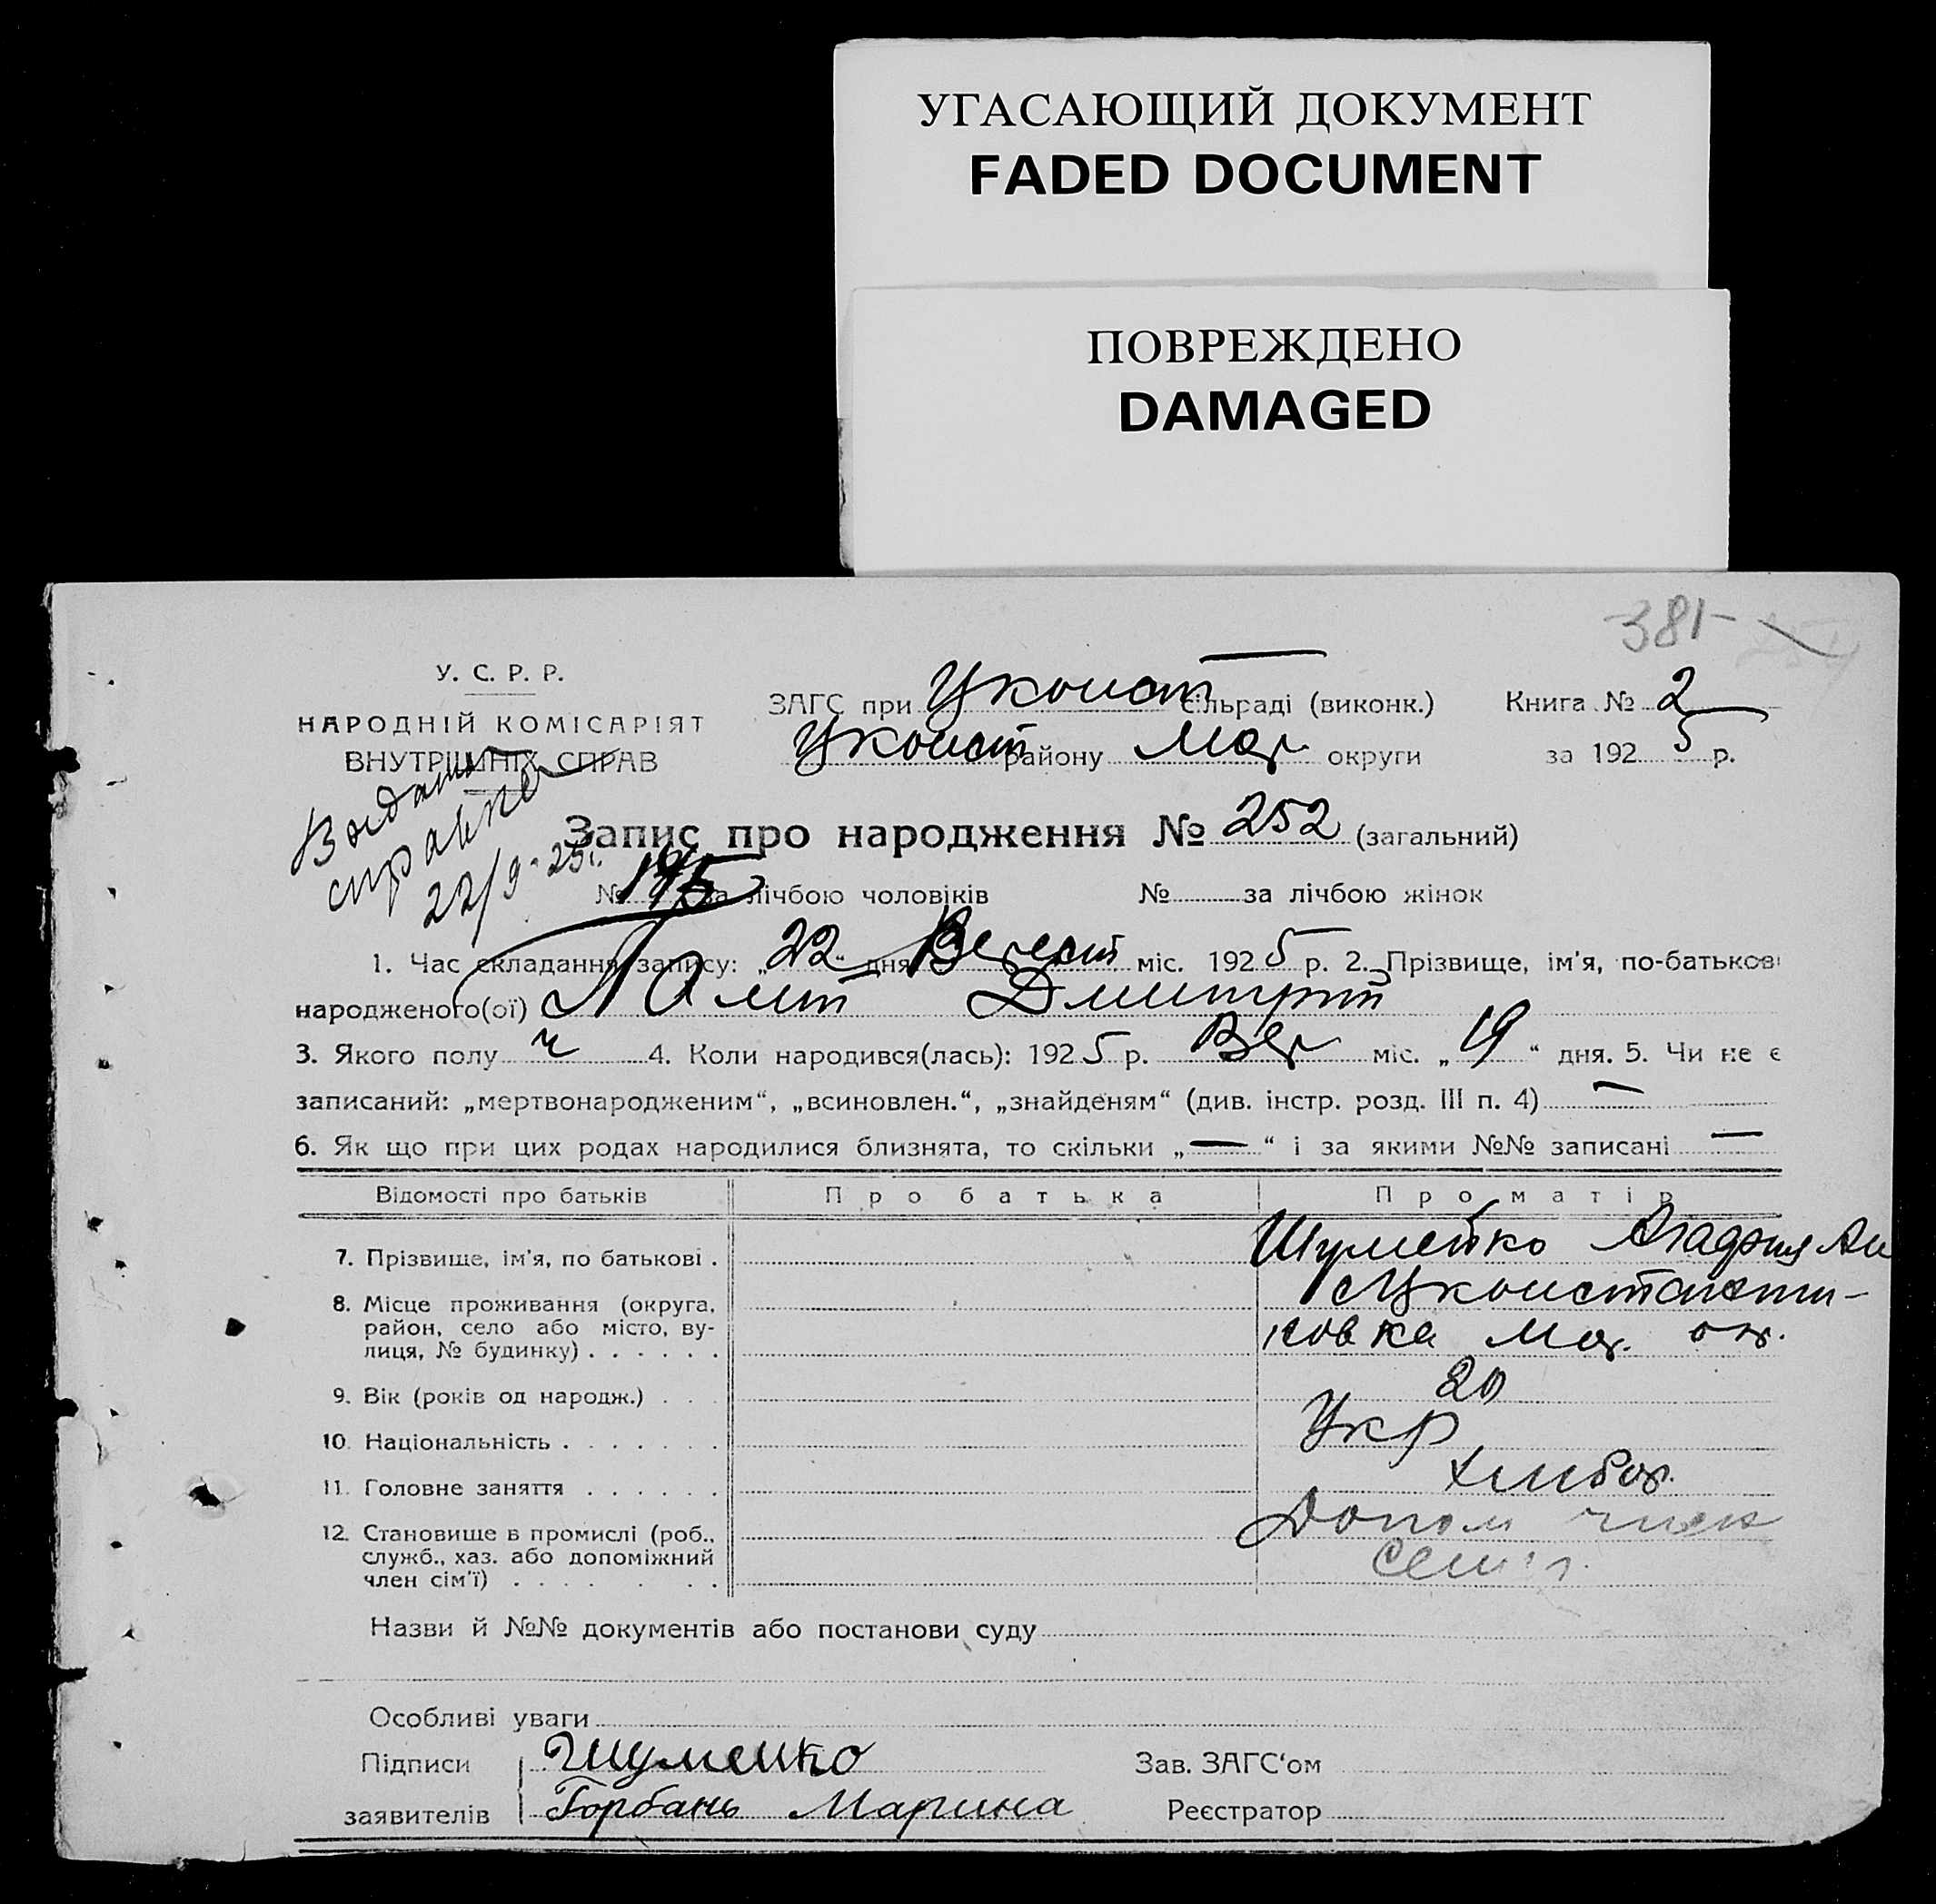 УГАСАЮЩИЙ ДОКУМЕНТ
FADED DOCUMENT
ПОВРЕЖДЕНО
DAMAGED
381
У. С. Р. Р.
НАРОДНІЙ КОМІСАРІЯТ
ВНУТРІШНІХ СПРАВ
ЗАГС при Уконст сільраді (виконк.) Книга № 2
Уконст району Мар округи за 1925 р.
справка
22/9-25
Запис про народження № 252 (загальний)
№ за лічбою чоловіків № за лічбою жінок
1. Час складання запису: „22“ дня Верест міс. 1925 р. 2. Прізвище, ім'я, по-батькові
народженого(ої) Дмитрт
3. Якого полу ч 4. Коли народився(лась): 1925 р. Вер міс. „19“ дня. 5. Чи не є
записаний: „мертвонародженим“, „всиновлен.“, „знайденям“ (див. інстр. розд. III п. 4) —
6. Як що при цих родах народилися близнята, то скільки „—“ і за якими №№ записані —
Відомості про батьків Про батька Про матір
7. Прізвище, ім'я, по батькові . Шумейко Агафия Ан
8. Місце проживання (округа, район, село або місто, вулиця, № будинку) . . . . . . Уконстанти-
новка Мар. ок.
9. Вік (років од народж.) . . . 20
10. Національність . . . . . . . Укр
11. Головне заняття . . . . . . Хлибор.
12. Становище в промислі (роб., служб., хаз. або допоміжний член сім'ї) . . . . . . Допом член
сем'ї.
Назви й №№ документів або постанови суду
Особливі уваги
Підписи Шумейко Зав. ЗАГС'ом
заявителів Горбань Марина Реєстратор